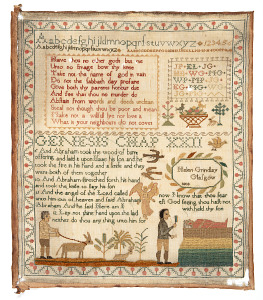 Aabcdefghijklmnopqrstuvwxyz 12345
Aabcdefghijklmnopqrstuvwxyz
Have no other gods but me
Unto no image bow thy knee
Take not the name of god in vain
Do not the Sabbath day profane
Give both thy parents honour due
And see that thou no murder do
Abstain from words and deeds unclean
Steal not though thou be poor and mean
Make not a wilful lye nor love it
What is your neighbours do not covet
GENESIS CHAP XXII
And Abraham took the wood of burnt
offering and laid it upon Isaac his son and he
took the fire in his hand and a knife and they
went both of them together
And Abraham stretched forth his hand
and took the knife to slay his son
And the angel of the Lord called
unto him out of heaven and said Abraham
Abraham And he said Here am I
Lay not thine hand upon the lad
neither do thou any thing unto him for
now I know that thou fear
est God seeing thou hast not
with held thy son
Helen
Glasgow